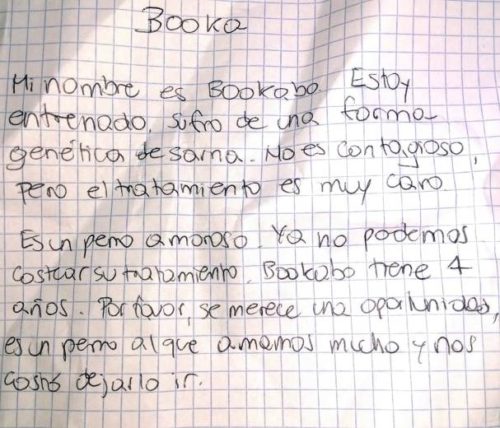 Booka
Mi nombre es Bookabo. Estoy
entrenado, sufro de una forma
genética de sarna. No es contagioso,
pero el tratamiento es muy caro
Es un perro amoroso. Ya no podemos
costear su tratamiento. Bookabo tiene 4
años. Por favor, se merece una oportunidad,
es un perro al que amamos mucho y nos
costó dejarlo ir.